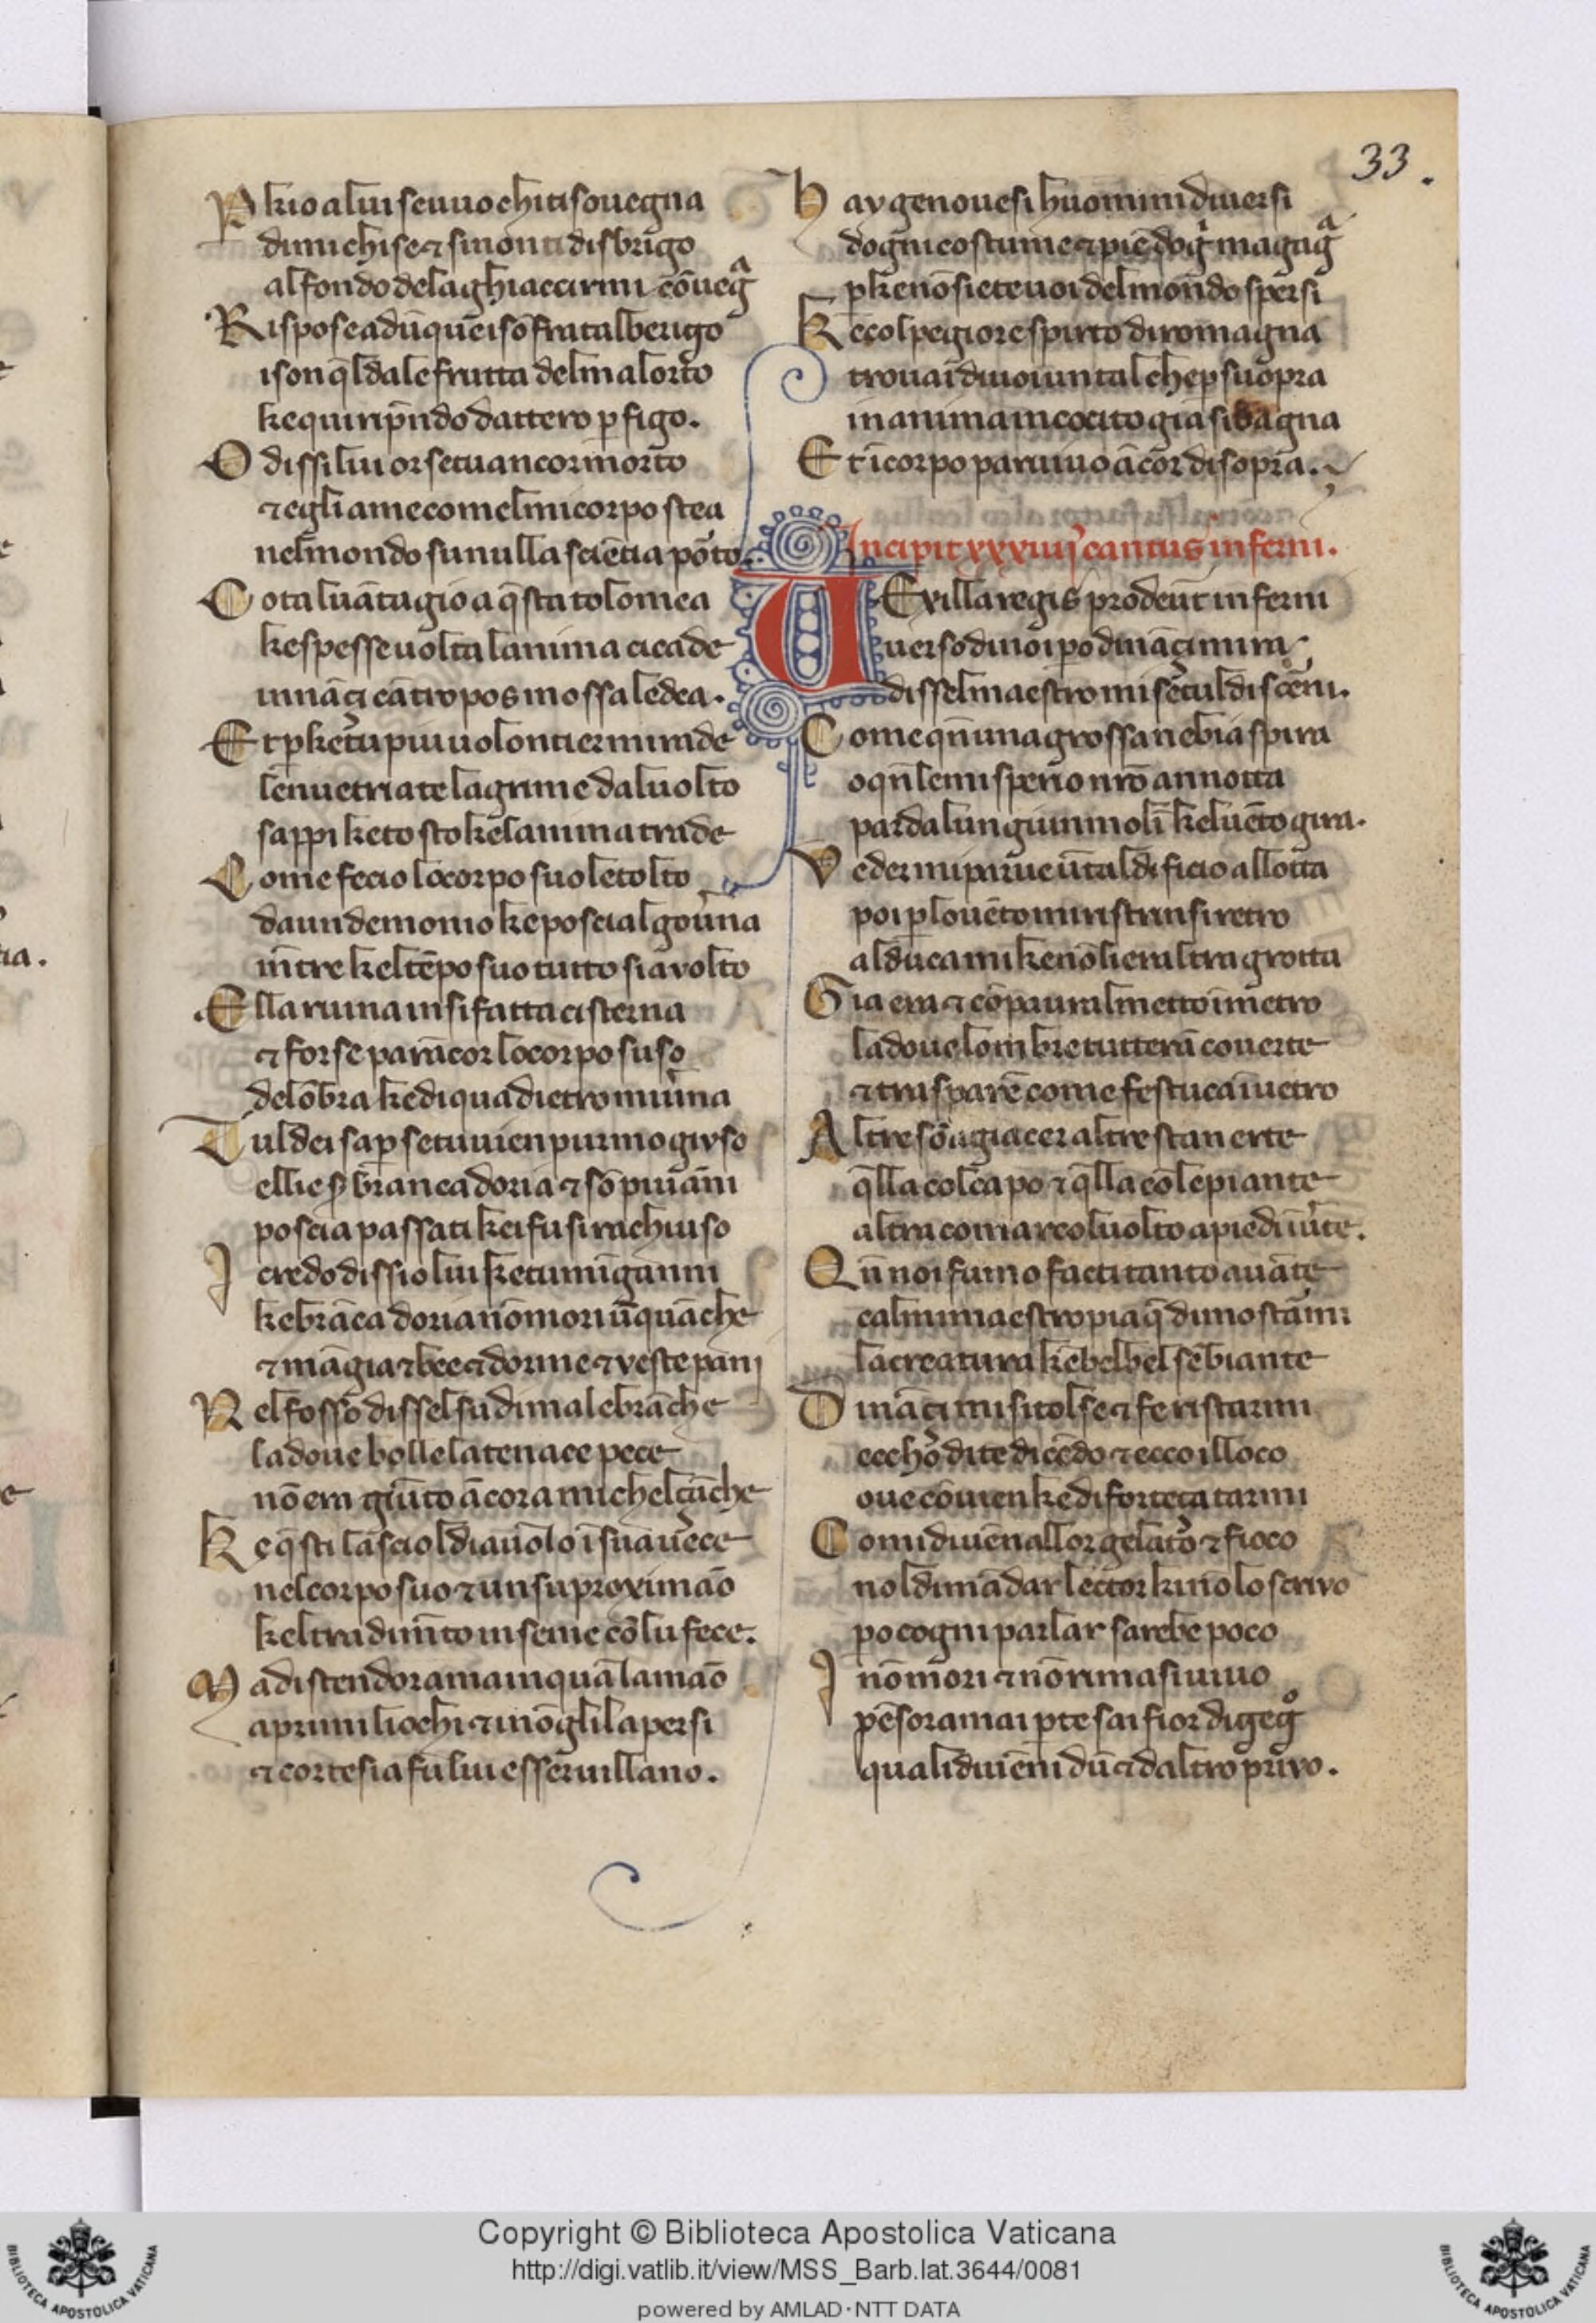 P kio a lui se vuo chiti sovegna
dimi chi se ⁊ si nonti disbrigo
al fondo dela ghiaccia irmi cōvegͣ
R ispose adūquei sō frat alberigo
i son q̄l dale frutta del mal orto
ke qui rip̄ndo dattero p figo.
O dissi lui or se tu ancor morto
⁊ egli a me come l mi corpo stea
nel mondo su nulla sciēcia pōto.
C otal vātagio a q̄sta tolomea
ke spesse volta lanima ci cade
innāçi cātropos mossa le dea.
E t p ke tu piu volontier mi rade
le nvetriate lagrime dal volto
sappi ke tosto ke lanima trade
C ome fecio lo corpo suo le tolto
da un demonio ke poscia l gov̄na
mētre kel tēpo suo tutto sia volto
E lla ruina in si fatta cisterna
⁊ forse par ācor lo corpo suso
delōbra ke di qua dietro mi v̄na
T u l dei sap se tu vien pur mo givso
elli e ser branca doria ⁊ sō piu āni
poscia passati kei fu si rachiuso
I credo dissio lui ke tu mīganni
ke brāca doria nō mori ūquāche
⁊ māgia ⁊ bee ⁊ dorme ⁊ veste pani
N el fosso dissel su di malebrāche
la dove bolle la tenace pece
nō era giūto ācora michel cāche
K e q̄sti lascio l diavolo ī sua vece
nel corpo suo ⁊ un su proximāo
kel tradimēto inseme cō lu fece.
M a distendi oramai in qua la māo
aprimi li ochi ⁊ i nō gli lapersi
⁊ cortesia fu lui esser villano.
H ay genovesi huomini diversi
dogni costume ⁊ piē dogͥ magagͣ
p ke nō siete voi del mōndo spersi
K e col pegiore spirto di romagna
trovai di voi un tal che p su opra
in anima in cocito gia si bagna
E t ī corpo par vivo ācor di sopra.
Incipit xxxiiij cantus inferni.
VExilla regis prodeūt inferni
verso di noi po dināçi mira
disse l maestro mi se tu l discēni.
C ome qn̄ una grossa nebia spira
o qn̄ lemisperio nr̄o annotta
par da lungi un molī kel vēto gira.
V eder mi parve ū tal dificio allotta
poi p lo vēto mi ristrinsi retro
al duca mi ke nō li era ltra grotta
G ia era ⁊ cō paura l metto ī metro
la dove lombre tutterā coverte
⁊ trasparē come festuca ī vetro
A ltre sō a giacer altre stan erte
q̄lla col capo ⁊ q̄lla cō le piante
altra comarco l volto a piedi īverte.
Q n̄ noi fumo facti tanto avāte
cal mi maestro piaq̄ di mostāmi
la creatura kebe l bel sēbiante
Dināçi mi si tolse ⁊ fe ristarmi
eccho dite dicēdo ⁊ ecco il loco
ove cōvien ke di forteça tarmi
C omi divēn allor gelato ⁊ fioco
nol dimādar lector ki nō lo scrivo
po cogni parlar sarebe poco
I nō mori ⁊ nō rimasi vivo
pēsa oramai p te sai fior digegͦ
quali divēni dū ⁊ daltro privo.
33.
Copyright © Biblioteca Apostolica Vaticana
http://digi.vatlib.it/view/MSS_Barb.lat.3644/0081
powered by AMLAD·NTT DATA
BIBLIOTECA APOSTOLICA VATICANA
BIBLIOTECA APOSTOLICA VATICANA